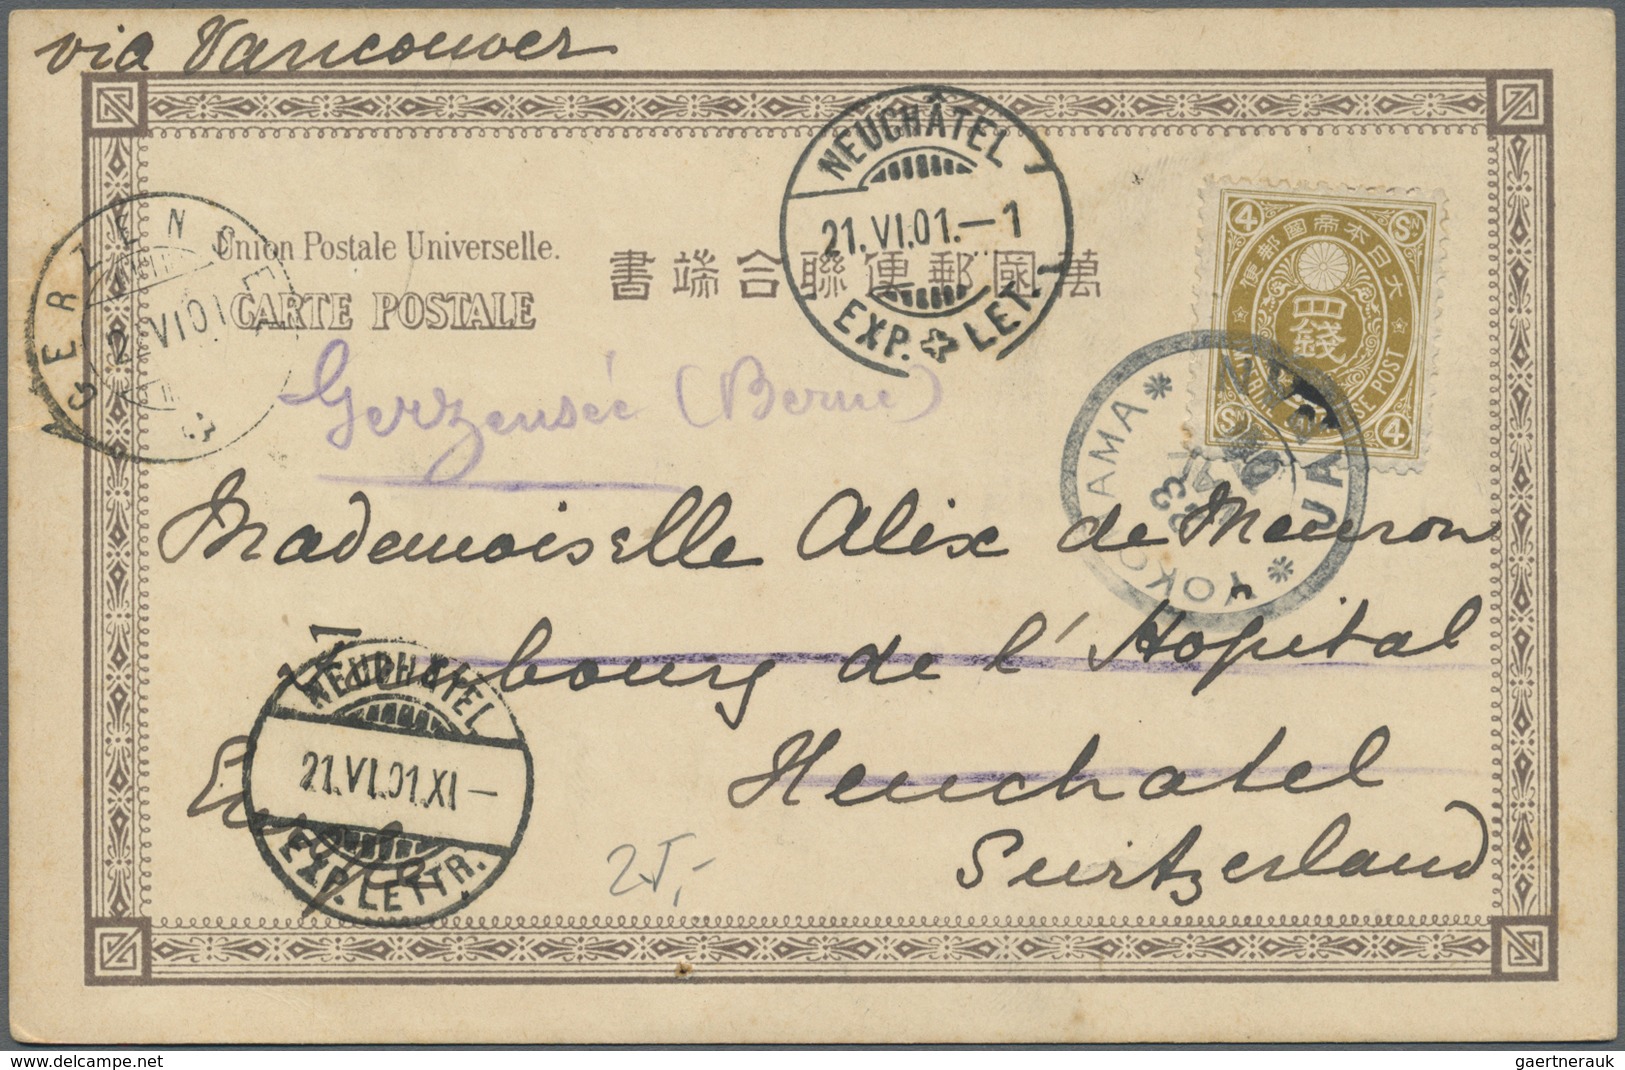 via Vancouver
NEUCHÂTEL
21.VI.01.—1
EXP. LET.
GERZENSEE
VI 01
Union Postale Universelle.
CARTE POSTALE
書端合聯便郵國萬
4 Sn
大日本帝國郵便
四錢
4
YOKOHAMA
JAPAN
23
Gerzensée (Berne)
Mademoiselle Alix de Meuron
Faubourg de l'Hôpital
Neuchatel
Switzerland
NEUCHÂTEL
21.VI.01.XI—
EXP. LETTR.
Europe
25,-
Delcampe.net
gaertnerauk